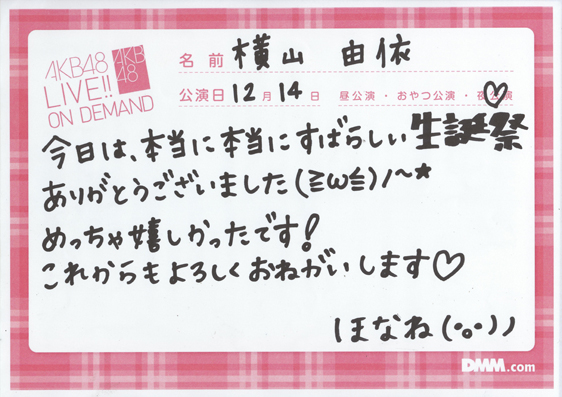 AKB48
LIVE!!
ON DEMAND
AKB
48
名前 横山 由依
公演日 12月 14日 昼公演・おやつ公演・夜公演
今日は、本当に本当にすばらしい生誕祭
ありがとうございました(≧ω≦)ノ〜★
めっちゃ嬉しかったです!
これからもよろしくおねがいします♡
ほなね(・o・)ノノ
DMM.com